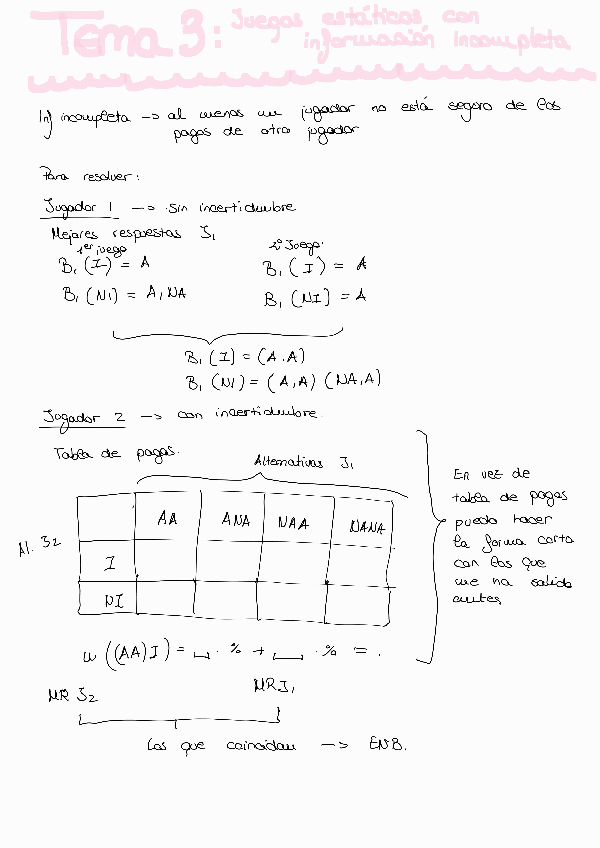 Tema 3: Juegos estáticos con
información Incompleta
Inf incompleta -> al menos un jugador no está seguro de los
pagos de otro jugador
Para resolver:
Jugador 1 -> sin incertidumbre
Mejores respuestas J1
1er juego
2º Juego.
B1 (I) = A
B1 (I) = A
B1 (NI) = A, NA
B1 (NI) = A
B1 (I) = (A.A)
B1 (NI) = (A,A) (NA,A)
Jugador 2 -> con incertidumbre.
Tabla de pagos.
Alternativas J1
AA ANA NAA NANA
Al. J2
I
NI
En vez de
tabla de pagos
puedo hacer
la forma corta
con los que
me ha salido
antes
u ((AA) I) = _ . % + _ . % = .
MR J2
MR J1
Los que coincidan -> ENB.